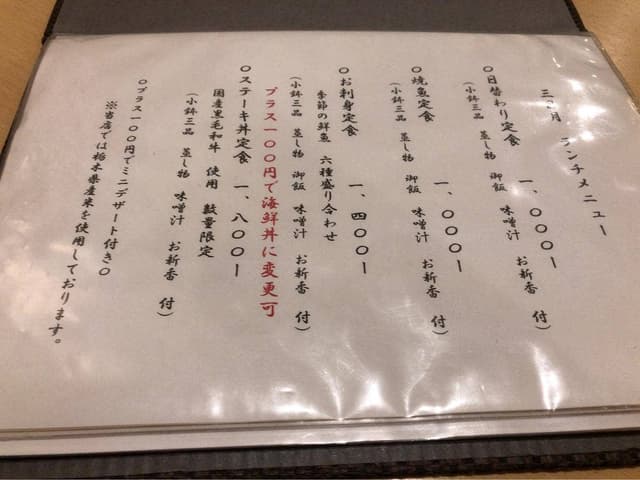 三つ月　ランチメニュー
○日替わり定食　一、〇〇〇ー
（小鉢三品　蒸し物　御飯　味噌汁　お新香　付）
○焼魚定食　一、〇〇〇ー
（小鉢三品　蒸し物　御飯　味噌汁　お新香　付）
○お刺身定食　一、四〇〇ー
季節の鮮魚　六種盛り合わせ
（小鉢三品　蒸し物　御飯　味噌汁　お新香　付）
プラス一〇〇円で海鮮丼に変更可
○ステーキ丼定食　一、八〇〇ー
国産黒毛和牛　使用　数量限定
（小鉢三品　蒸し物　味噌汁　お新香　付）
○プラス一〇〇円でミニデザート付き○
※当店では栃木県産米を使用しております。